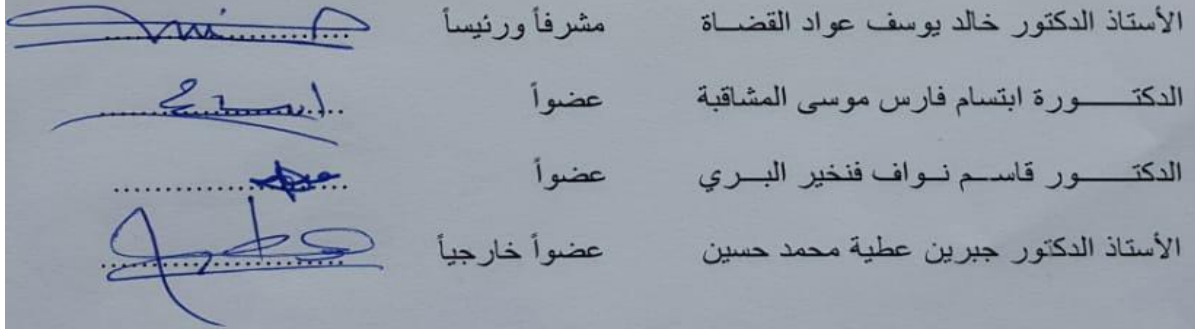 الأستاذ الدكتور خالد يوسف عواد القضاة مشرفاً ورئيساً
الدكتورة ابتسام فارس موسى المشاقبة عضواً
الدكتور قاسم نواف فنخير البري عضواً
الأستاذ الدكتور جبرين عطية محمد حسين عضواً خارجياً